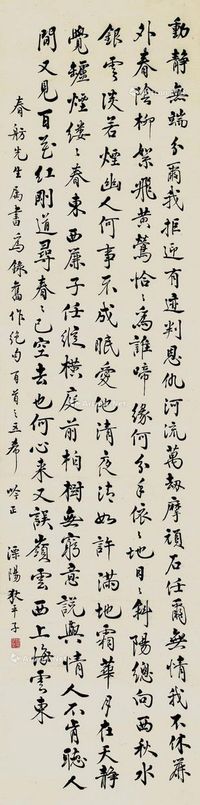 動靜無端分爾我拒迎有迹判恩仇河流萬劫摩頑石任爾無情我不休簾
外春陰柳絮飛黃鶯恰〻為誰啼緣何分手依〻地日〻斜陽總向西秋水
銀雲淡若煙幽人何事不成眠愛他清夜清如許滿地霜華月在天靜
覺罏煙縷〻春東西廉子任縱橫庭前柏樹無窮意說與情人不肯聽人
間又見百花紅剛道尋春〻已空去也何心來又誤嶺雲西上海雲東
春舫先生屬書為錄舊作絕句百首之五希 吟正
溧陽狄平子